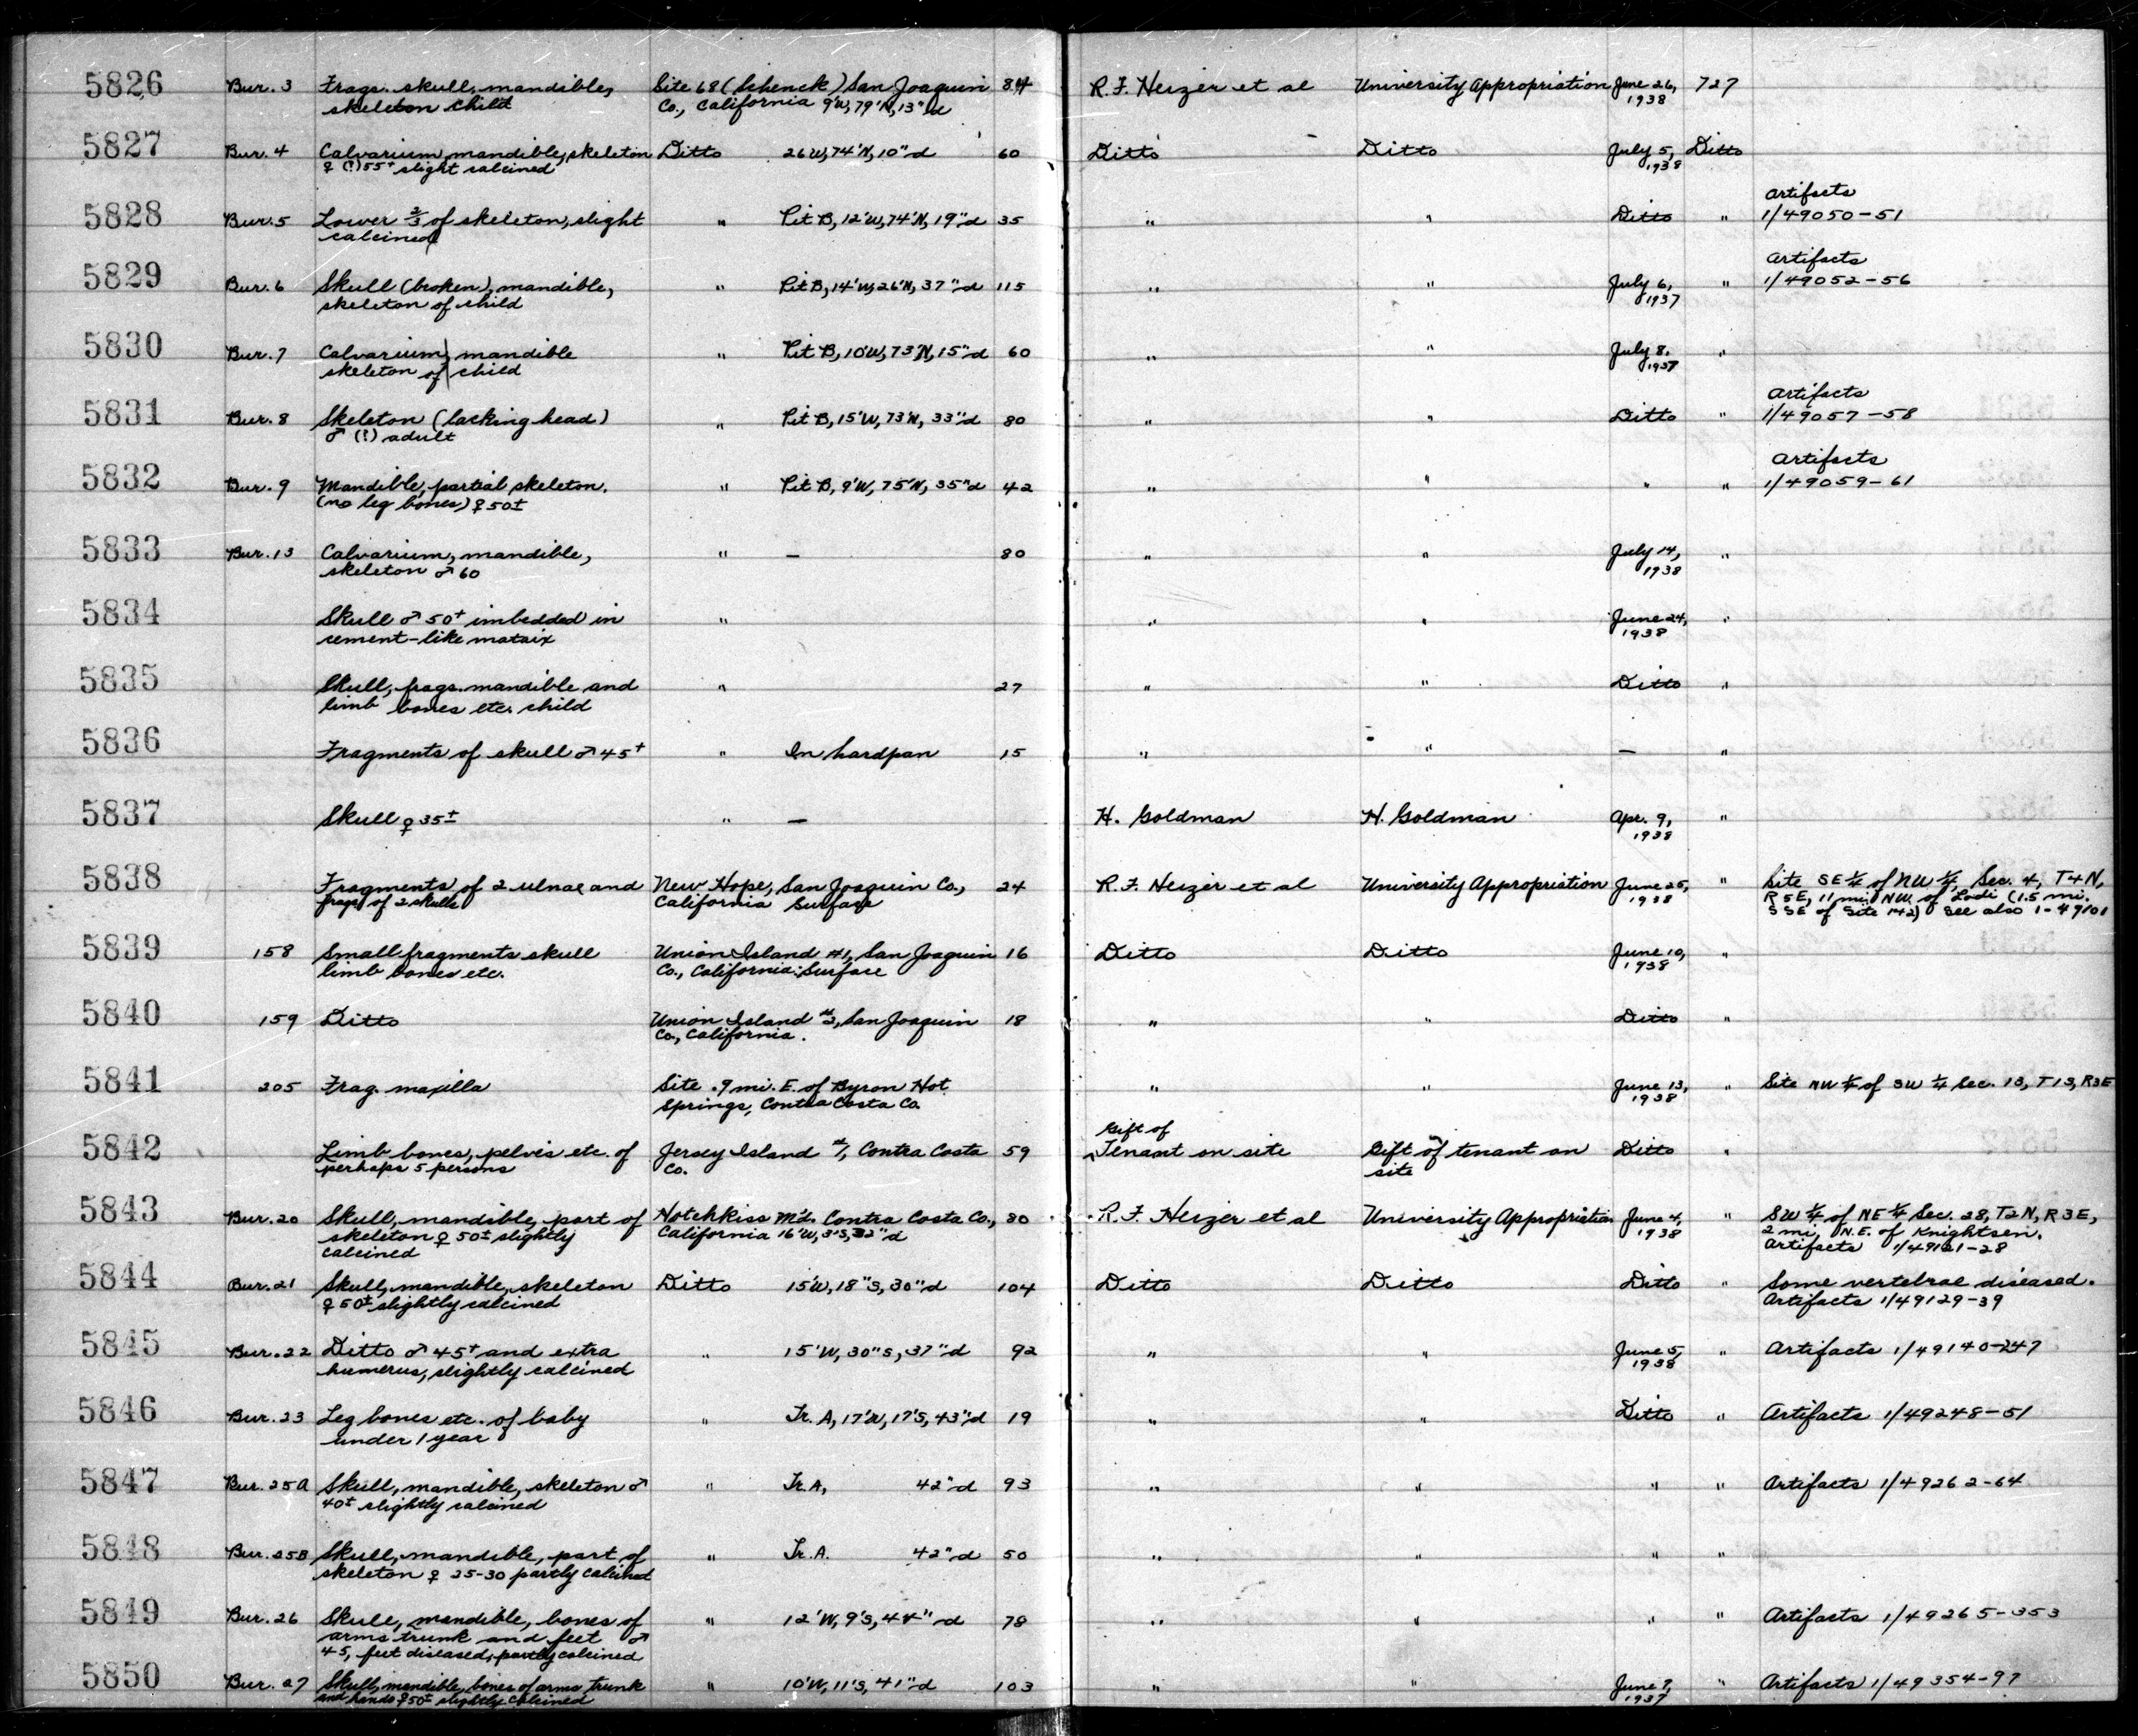 5826 Bur. 3 Frags. skull, mandible, Site 68 (Schenck) San Joaquin 84 R. F. Heizer et al University Appropriation June 26, 727
skeleton child Co., California 9'W, 79'N, 13"d 1938
5827 Bur. 4 Calvarium, mandible, skeleton Ditto 26'W, 74'N, 10"d 60 Ditto Ditto July 5, Ditto
♀ (?) 55+ slight calcined 1938
Artifacts
5828 Bur. 5 Lower 2/3 of skeleton, slight " Pit B, 12'W, 74'N, 19"d 35 " " Ditto " 1/49050-51
calcined
Artifacts
5829 Bur. 6 Skull (broken), mandible, " Pit B, 14'W, 26'N, 37"d 115 " " July 6, " 1/49052-56
skeleton of child 1937
5830 Bur. 7 Calvarium, mandible " Pit B, 10'W, 73'N, 15"d 60 " " July 8, "
skeleton of child 1937
Artifacts
5831 Bur. 8 Skeleton (lacking head) " Pit B, 15'W, 73'N, 33"d 80 " " Ditto " 1/49057-58
♂ (?) adult
Artifacts
5832 Bur. 9 Mandible, partial skeleton. " Pit B, 9'W, 75'N, 35"d 42 " " " " 1/49059-61
(no leg bones) ♀ 50±
5833 Bur. 13 Calvarium, mandible, " — 80 " " July 14, "
skeleton ♂ 60 1938
5834 Skull ♂ 50+ imbedded in " " " June 24, "
cement-like mataix 1938
5835 Skull, frags. mandible and " 27 " " Ditto "
limb bones etc. child
5836 Fragments of skull ♂ 45+ " In hardpan 15 " " — "
5837 Skull ♀ 35± " — H. Goldman H. Goldman Apr. 9, "
1938
5838 Fragments of 2 ulnae and New Hope, San Joaquin Co., 24 R. F. Heizer et al University Appropriation June 25, " Site SE 1/4 of NW 1/4, Sec. 4, T4N,
frags of 2 skulls California Surface 1938 R5E, 11 mi. NW. of Lodi (1.5 mi.
SSE of Site 142) See also 1-49101
5839 158 Small fragments skull Union Island #1, San Joaquin 16 Ditto Ditto June 10, "
limb bones etc. Co., California: Surface 1938
5840 159 Ditto Union Island #2, San Joaquin 18 " " Ditto "
Co., California.
5841 205 Frag. maxilla Site .9 mi. E. of Byron Hot " " June 13, " Site NW 1/4 of SW 1/4 Sec. 13, T1S, R3E
Springs, Contra Costa Co. 1938
Gift of
5842 Limb bones, pelvis etc. of Jersey Island #1, Contra Costa 59 Tenant on site Gift of tenant on Ditto "
perhaps 5 persons Co. site
5843 Bur. 20 Skull, mandible, part of Hotchkiss Md. Contra Costa Co., 80 R. F. Heizer et al University Appropriation June 4, " SW 1/4 of NE 1/4 Sec. 28, T2N, R3E,
skeleton ♀ 50± slightly California 16'W, 3'S, 32"d 1938 2 mi. N.E. of Knightsen.
calcined Artifacts 1/49121-28
5844 Bur. 21 Skull, mandible, skeleton Ditto 15'W, 18"S, 30"d 104 Ditto Ditto Ditto " Some vertebrae diseased.
♀ 50± slightly calcined Artifacts 1/49129-39
5845 Bur. 22 Ditto ♂ 45+ and extra " 15'W, 30"S, 37"d 92 " " June 5, " Artifacts 1/49140-247
humerus, slightly calcined 1938
5846 Bur. 23 Leg bones etc. of baby " Tr. A, 17'W, 17'S, 43"d 19 " " Ditto " Artifacts 1/49248-51
under 1 year
5847 Bur. 25A Skull, mandible, skeleton ♂ " Tr. A, 42"d 93 " " " " Artifacts 1/49262-64
40± slightly calcined
5848 Bur. 25B Skull, mandible, part of " Tr. A. 42"d 50 " " " "
skeleton ♀ 25-30 partly calcined
5849 Bur. 26 Skull, mandible, bones of " 12'W, 9'S, 44"d 78 " " " " Artifacts 1/49265-353
arms trunk and feet ♂
45, feet diseased, partly calcined
5850 Bur. 27 Skull, mandible, bones of arms trunk " 10'W, 11'S, 41"d 103 " " June 7, " Artifacts 1/49354-97
and hands ♀ 50± slightly calcined 1937